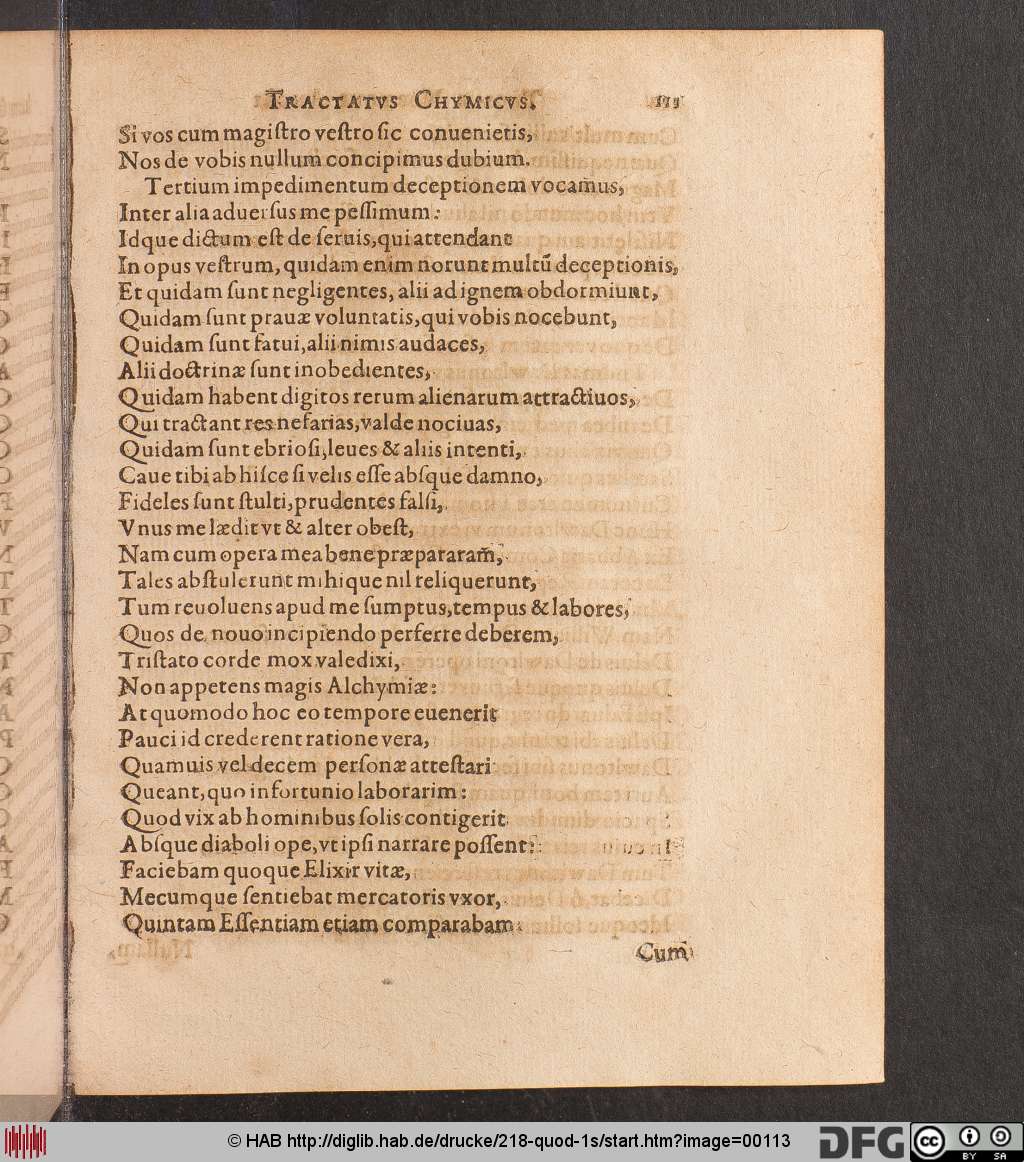 TRACTATVS CHYMICVS. 111
Si vos cum magiſtro veſtro ſic conuenietis,
Nos de vobis nullum concipimus dubium.
Tertium impedimentum deceptionem vocamus,
Inter alia aduerſus me peſſimum:
Idque dictum eſt de ſeruis, qui attendant
In opus veſtrum, quidam enim norunt multũ deceptionis,
Et quidam ſunt negligentes, alii ad ignem obdormiunt,
Quidam ſunt prauæ voluntatis, qui vobis nocebunt,
Quidam ſunt fatui, alii nimis audaces,
Alii doctrinæ ſunt inobedientes,
Quidam habent digitos rerum alienarum attractiuos,
Qui tractant res nefarias, valde nociuas,
Quidam ſunt ebrioſi, leues & aliis intenti,
Caue tibi ab hiſce ſi velis eſſe abſque damno,
Fideles ſunt ſtulti, prudentes falſi,
Vnus me lædit vt & alter obeſt,
Nam cum opera mea bene præpararam̃,
Tales abſtulerunt mihique nil reliquerunt,
Tum reuoluens apud me ſumptus, tempus & labores,
Quos de nouo incipiendo perferre deberem,
Triſtato corde mox valedixi,
Non appetens magis Alchymiæ:
At quomodo hoc eo tempore euenerit
Pauci id crederent ratione vera,
Quamuis vel decem perſonæ atteſtari
Queant, quo infortunio laborarim:
Quod vix ab hominibus ſolis contigerit
Abſque diaboli ope, vt ipſi narrare poſſent:
Faciebam quoque Elixir vitæ,
Mecumque ſentiebat mercatoris vxor,
Quintam Eſſentiam etiam comparabam:
Cum
© HAB http://diglib.hab.de/drucke/218-quod-1s/start.htm?image=00113
DFG
cc BY SA